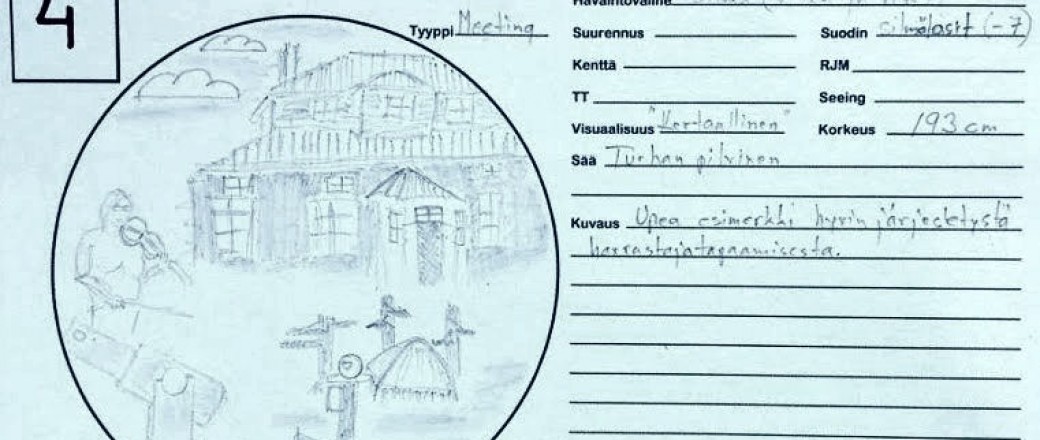 4
Tyyppi Meeting
Havaintoväline
Suurennus
Suodin silmälasit (-7)
Kenttä
RJM
TT
Seeing
Visuaalisuus "Kertaallinen"
Korkeus 193 cm
Sää Turhan pilvinen
Kuvaus Upea esimerkki hyvin järjestetystä
harrastajatapaamisesta.